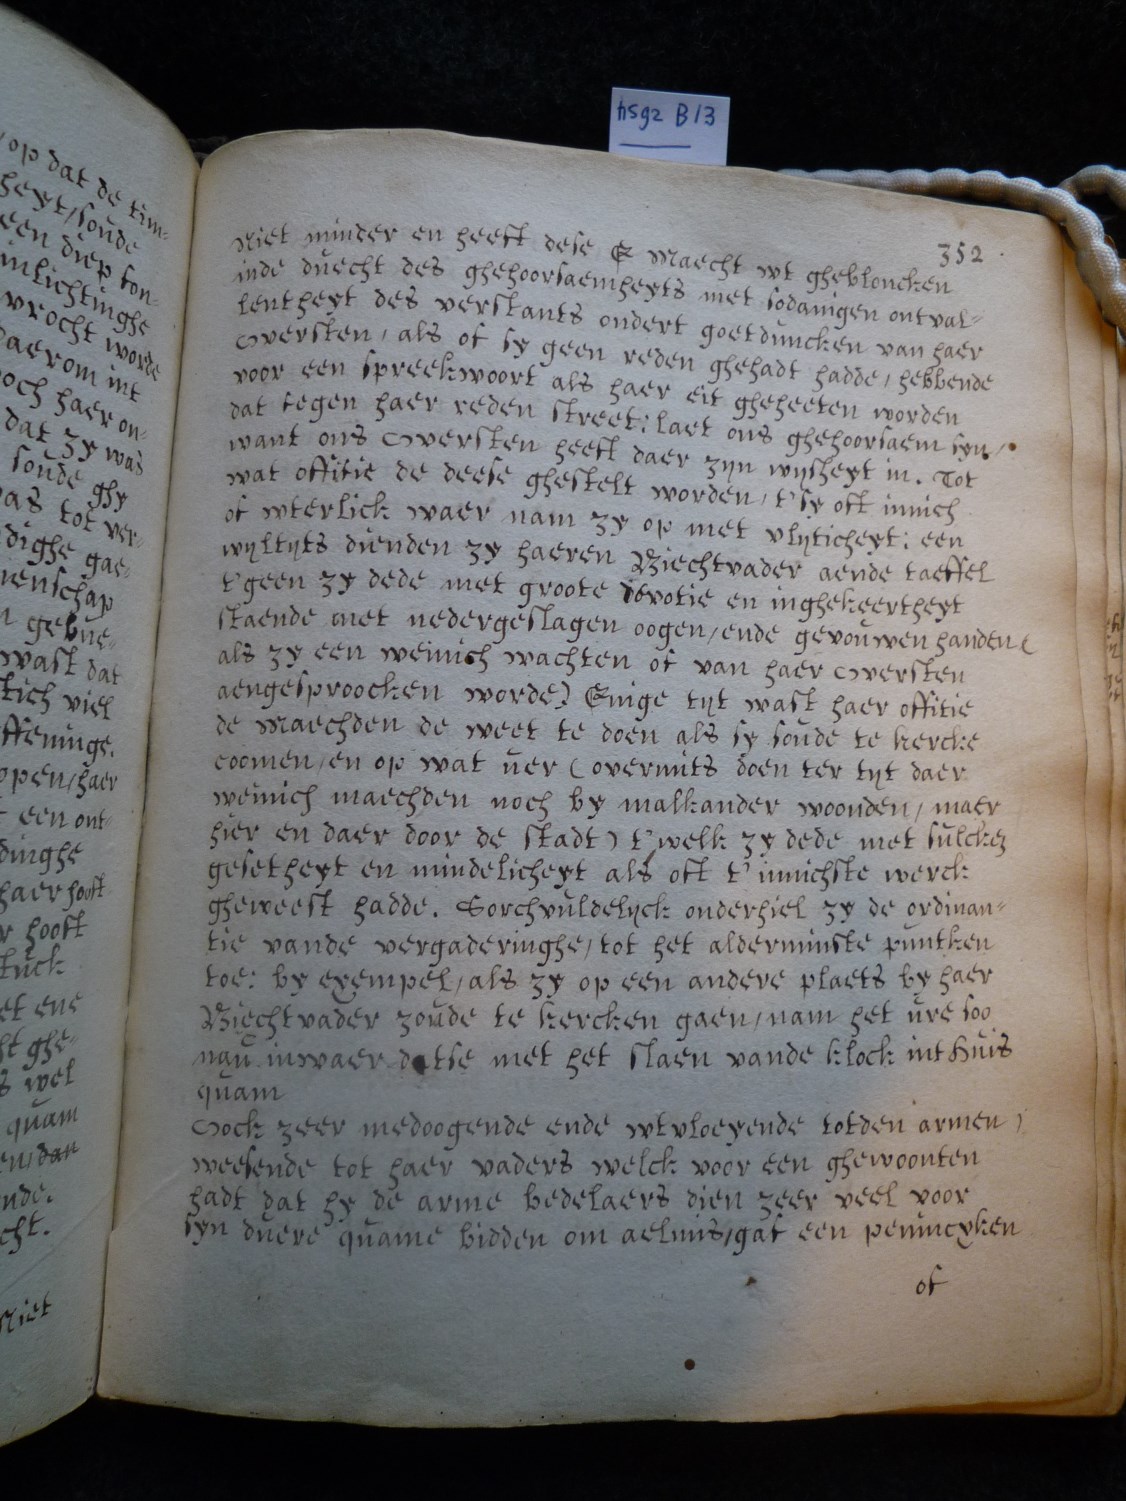 hsgz B13
352
Niet minder en heeft dese E Maecht wt ghebloncken
inde duecht des ghehoorsaemheyts met sodanigen ontval-
lentheyt des verstants ondert goetduncken van haer
Oversten, als of sy geen reden ghehadt hadde, hebbende
voor een spreekwoort als haer eit gheheeten worden
dat tegen haer reden street: laet ons ghehoorsaem syn,
want ons Oversten heeft daer zyn wysheyt in. Tot
wat offitie de deese ghestelt worden, t'sy oft innich
of wterlick waer nam zy op met vlyticheyt: een
wyltyts dienden zy haeren Biechtvader aende taeffel
t'geen zy dede met groote devotie en inghekeertheyt
staende met nedergeslagen oogen, ende gevouwen handen (
als zy een weinich wachten of van haer Oversten
aengesproocken worde) Enige tyt wast haer offitie
de Maechden de weet te doen als sy soude te kercke
coomen, en op wat uer (overmits doen ter tyt daer
weinich maechden noch by malkander woonden, maer
hier en daer door de stadt) t'welk zy dede met sulcke
gesetheyt en mindelicheyt als oft t'innichste werck
gheweest hadde. Sorchvuldelyck onderhiel zy de ordinan-
tie vande vergaderinghe, tot het alderminste puntken
toe: by exempel, als zy op een andere plaets by haer
Biechtvader zoude te kercken gaen, nam het ure soo
nau inwaer datse met het slaen vande klock int Huis
quam
Oock zeer medoogende ende wtvloeyende totden armen,
weesende tot haer vaders welck voor een ghewoonten
hadt dat hy de arme bedelaers dien zeer veel voor
syn duere quame bidden om aelmis, gaf een pennincxken
of
op dat de tim-
heyt, soude
een diep fon-
inlichtinghe
wrocht worde
daerom int
och haer on-
dat zy was
soude ghy
as tot ver-
dighe gae-
menschap
gebue-
wast dat
tich viel
ffeninge.
open, haer
een ont-
dinghe
haer hooft
r hooft
tuck
et ene
ht ghe-
s wel
quam
en, dan
nde.
cht.
Niet